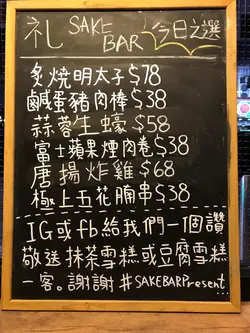 礼 SAKE BAR 今日之選
炙燒明太子$78
鹹蛋豬肉棒$38
蒜蓉生蠔$58
富士蘋果煙肉卷$38
唐揚炸雞$68
極上五花腩串$38
IG或fb給我們一個讚
敬送抹茶雪糕或豆腐雪糕
一客。謝謝#SAKEBARPresent